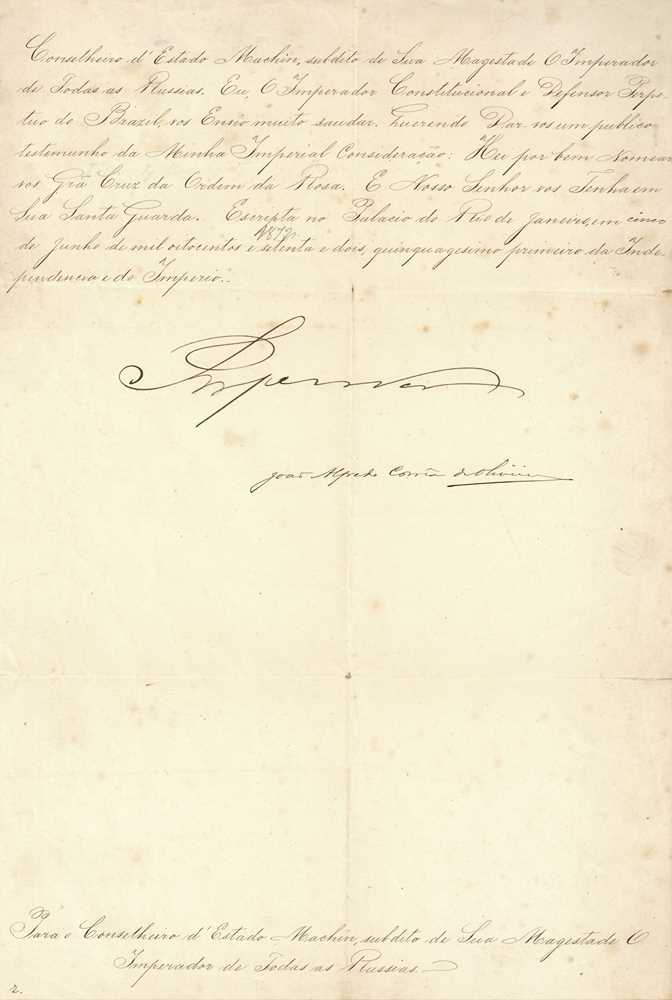 Conselheiro d'Estado Machin, subdito de Sua Magestade O Imperador
de Todas as Russias. Eu, O Imperador Constitucional e Defensor Perpe-
tuo do Brazil, vos Envio muito saudar. Querendo Dar-vos um publico
testemunho da Minha Imperial Consideração: Hei por bem Nomear-
vos Grã Cruz da Ordem da Rosa. E Nosso Senhor vos Tenha em
Sua Santa Guarda. Escripta no Palacio do Rio de Janeiro, em cinco
1872
de Junho de mil oitocentos e setenta e dois, quinquagesimo primeiro da Inde-
pendencia e do Imperio..
Imperador
João Alfredo Corrêa de Oliveira
Para o Conselheiro d'Estado Machin, subdito de Sua Magestade O
Imperador de Todas as Russias.
r.